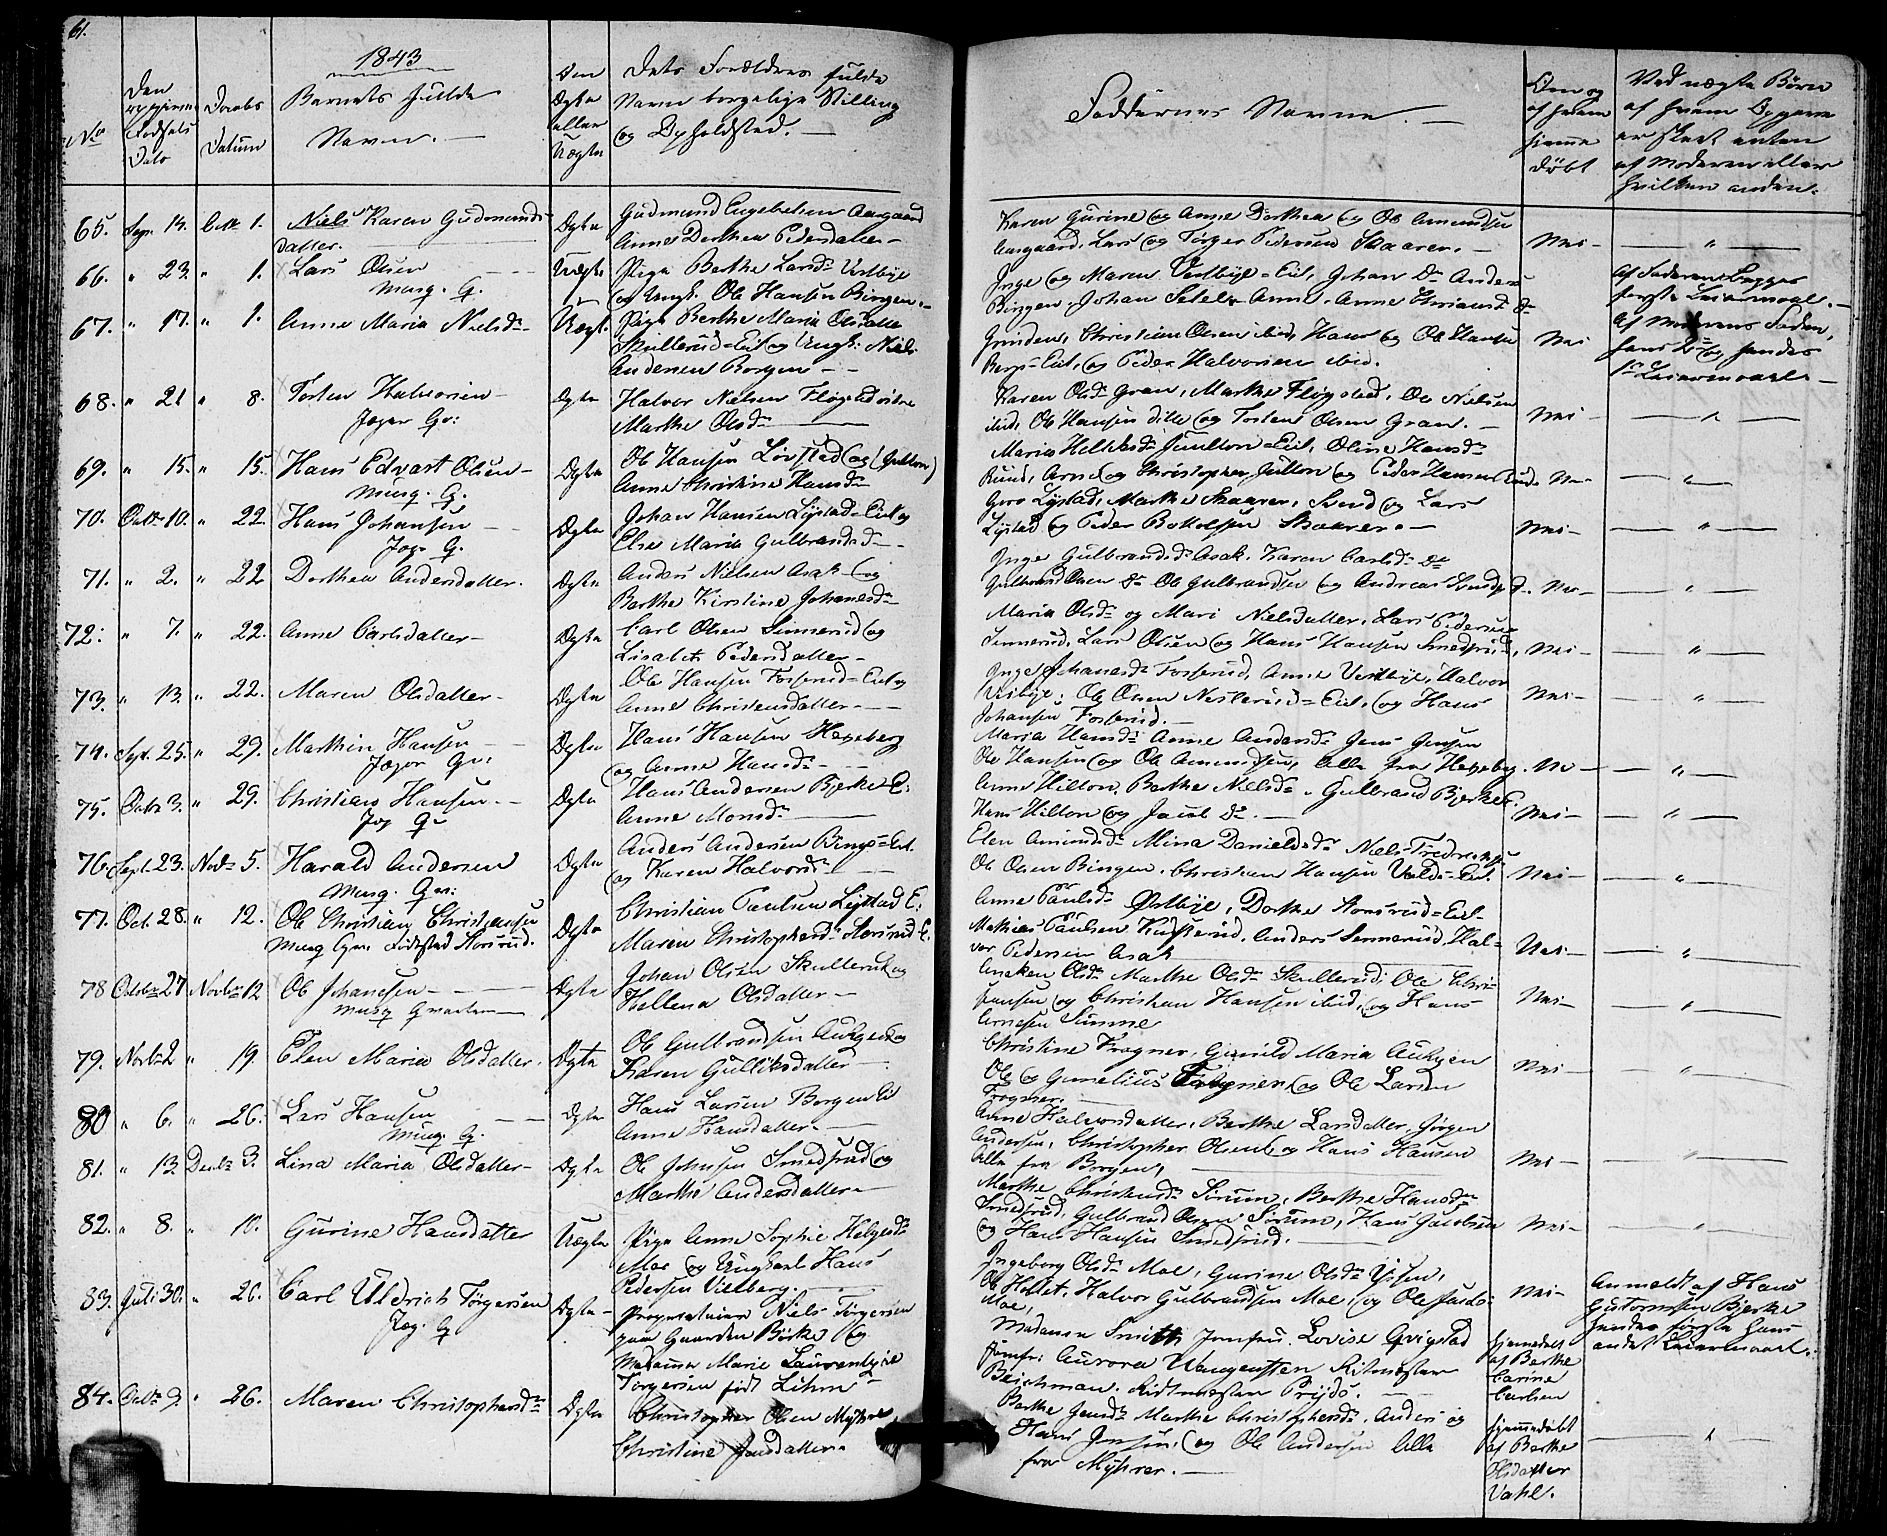 61.
1843
No
Den
Fødsels
Dato
Daabs
Datum
Barnets fulde
Navn.
Om
Ægte
eller
Uægte
Dets Forældres fulde
Navn borgelige Stilling
og Opholdsted.
Faddernes Navne.
Om og
af hvem
hjemme
døbt
Ved uægte Børn
af hvem Opgave
er skeet enten
af Moderen eller
hvilken anden.
65. Sepr 14. Octr 1. Niels Karen Gudmunds
datter.
Ægte
Gudmund Engebretsen Aargaard
Anne Dorthea Pedersdatter
Karen Gurine og Anne Dorthea og Ole Amundsen
Aargaard, Lars og Torger Pedersen Skaarer.
Nei
66. " 23. " 1. Lars Olsen
Musq. G.
Uægte
Pige Berthe Larsdr Vestbye
og Ungk. Ole Hansen Bingen.
Inge og Maren Vestbye-Eie, Johan Dr Anders
Af Faderen begges
første Leiermaal.
67. " 17. " 1. Anne Maria Nielsdr
Uægte
Pige Berthe Maria Olsdatter
Skullerud-Eie og Ungk: Niels
Andersen Borgen
Christian Olsen ibid, Hans og Ole Hansen
og Peder Halvorsen ibid.
Nei
Af Moderens Fader,
hans og hendes
1ste Leiermaal
68. " 21 " 8. Torsten Halvorsen
Jæger Gv:
Ægte
Halvor Nielsen Fløgstadvitne
Marthe Olsdr
Karen Olsdr Gran, Marthe Fløgstad, Ole Nielsen
ibid, Ole Hansen ditto og Torsten Olsen Gran.
Nei
69. " 15. " 15. Hans Edvart Olsen
Musq. G.
Ægte
Ole Hansen Løvstad og (Julton)
Anne Christine Hansdr
Maria Helleksdr Juulton-Eie, Oline Hansdr
Rund, Arne og Christopher Jultom og Peder Hansen Rund.
70. Octbr 10. " 22. Hans Johansen
Jægr G.
Ægte
Johan Hansen Lystad-Eie og
Else Maria Gulbrandsd
Goro Lystad, Marthe Skaarer, Svend og Lars
Lystad og Peder Bottolfsen Skaarer.
Nei
71. " 2. " 22 Dorthea Andersdatter.
Ægte
Anders Nielsen Asak og
Berthe Kirstine Johanesdr
Inge Gulbrandsdr Asak, Karen Carlsdr Dr
Gulbrand Olsen Dr Ole Gulbrandsen og Andreas
72. " 7. " 22. Anne Carlsdatter
Ægte
Carl Olsen Sennerud og
Lisabeth Pedersdatter
Maria Olsdr og Mari Nielsdatter, Lars Pedersen
Sennerud, Lars Olsen og Hans Hansen Smedsrud,
Nei
73. " 13. " 22. Maren Olsdatter
Ægte
Ole Hansen Fosserud-Eie og
Anne Christensdatter
Inge Johanesdr Fosserud, Anne Vestbye, Halvor
Vesbye, Ole Olsen Neslerud-Eie, og Hans
Johansen Fosserud.
Nei
74. Sept. 25. " 29. Marthin Hansen
Jæger Gv:
Ægte
Hans Hansen Hexeberg
og Anne Hansdr
Maria Hansdr Anne Andersdr Jens Jensen
Ole Hansen og Ole Amundsen, alle fra Hexeberg.
75. Octbr 3. " 29. Christian Hansen
Jæg G
Ægte
Hans Andersen Bjerke E.
Anne Monsdr
Anne Hilton, Berthe Nielsdr, Gulbrand Bjerke E.
Hans Hilton og Jacob Dr.
Nei
76. Sept. 23. Novbr 5. Harald Andersen
Musq. Gv:
Ægte
Anders Andersen Bings-Eie.
og Karen Halvorsdr
Elen Amundsdr Mina Danielsdr Niels Fredriksen
Ole Olsen Bingen, Christian Hansen Volds-Eie.
Nei
77. Oct. 28. " 12. Ole Christian Christiansen
Musq Gv. Fødested Aarsrud.
Ægte
Christian Paulsen Lystad E.
Maren Christophersdr Aarsrud E.
Anne Paulsdr Østbye, Dorthe Aarsrud-Eie
Mathias Paulsen Kusserud, Anders Sennerud, Hal-
vor Pedersen Asak
Nei
78 Octobr 27 Novbr 12 Ole Johanesen
Musq Gevorben
Ægte
Johan Olsen Skullerud og
Hellena Olsdatter
Aneken Olsdr Marthe Olsdr Skullerud, Ole Chri-
stensen og Christian Hansen ibid, og Hans
Arnesen Simme
Nei
79. Novbr 2 " 19. Elen Maria Olsdatter.
Ægte
Ole Gulbrandsen Aukyen og
Karen Gulliksdatter
Christine Frogner, Gunild Maria Aukyen
Ole og Gunelius Frogner og Ole Larsen
Frogner.
Nei
80 " 6. " 26. Lars Hansen
Musq. G.
Ægte
Hans Larsen Borgen Eie
Anne Hansdatter
Anne Halvorsdatter, Berthe Larsdatter, Jørgen
Andersen, Christopher Olsen og Hans Hansen
Alle fra Borgen,
81. " 13. Decbr 3. Lina Maria Olsdatter
Ægte
Ole Johnsen Smedsrud og
Marthe Andersdatter
Marthe Christensdr Sørum, Berthe Hansdr
Smedsrud, Gulbrand Olsen Sørum, Hans Jacobsen
og Hans Hansen Smedsrud.
Nei
82. " 8. " 10. Gurine Hansdatter
Uægte
Pige Anne Sophie Helgesdr
Moe og Ungkarl Hans
Pedersen Vielberg.
Ingeborg Olsdr Moe, Gurine Olsdr
Ole Holet, Halvor Gulbrandsen Moe, og Ole
Moe,
Nei
Anmeldt af Hans
Gustormsen Bjerke
hendes første hans
andet Leiermaal.
83. Juli 30. " 26. Carl Uldrich Torgersen
Jæg. G
Ægte
Proprietaire Niels Torgersen
paa Gaarden Børke og
Madame Marie Laurentzie
Torgersen født Lihme
Madame Smith, Jomfru Lovise Qvigstad
Jomfr: Aurora Wangensteen, Ritmester
Beichman, Ridtmester Prydz.
hjemmedøbt
af Berthe
Carine
Carlsen
84. Octbr 9. " 26. Maren Christophersdr
Ægte
Christopher Olsen Myhre
Christine Jensdatter
Berthe Jensdr Marthe Christophersdr, Anders og
Hans Jensen, og Ole Andersen Alle
fra Myhrer.
hjemmedøbt
af Berthe
Olsdatter
Vahl.